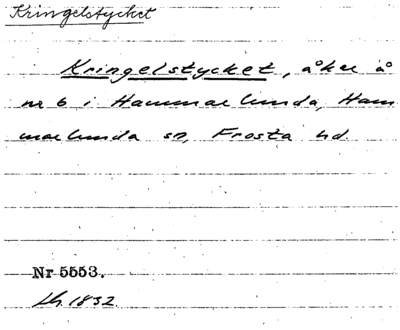 Kringelstycket
Kringelstycket, åker å
nr 6 i Hammarlunda, Ham
marlunda sn, Frosta hd.
Nr 5553.
Lh. 1832